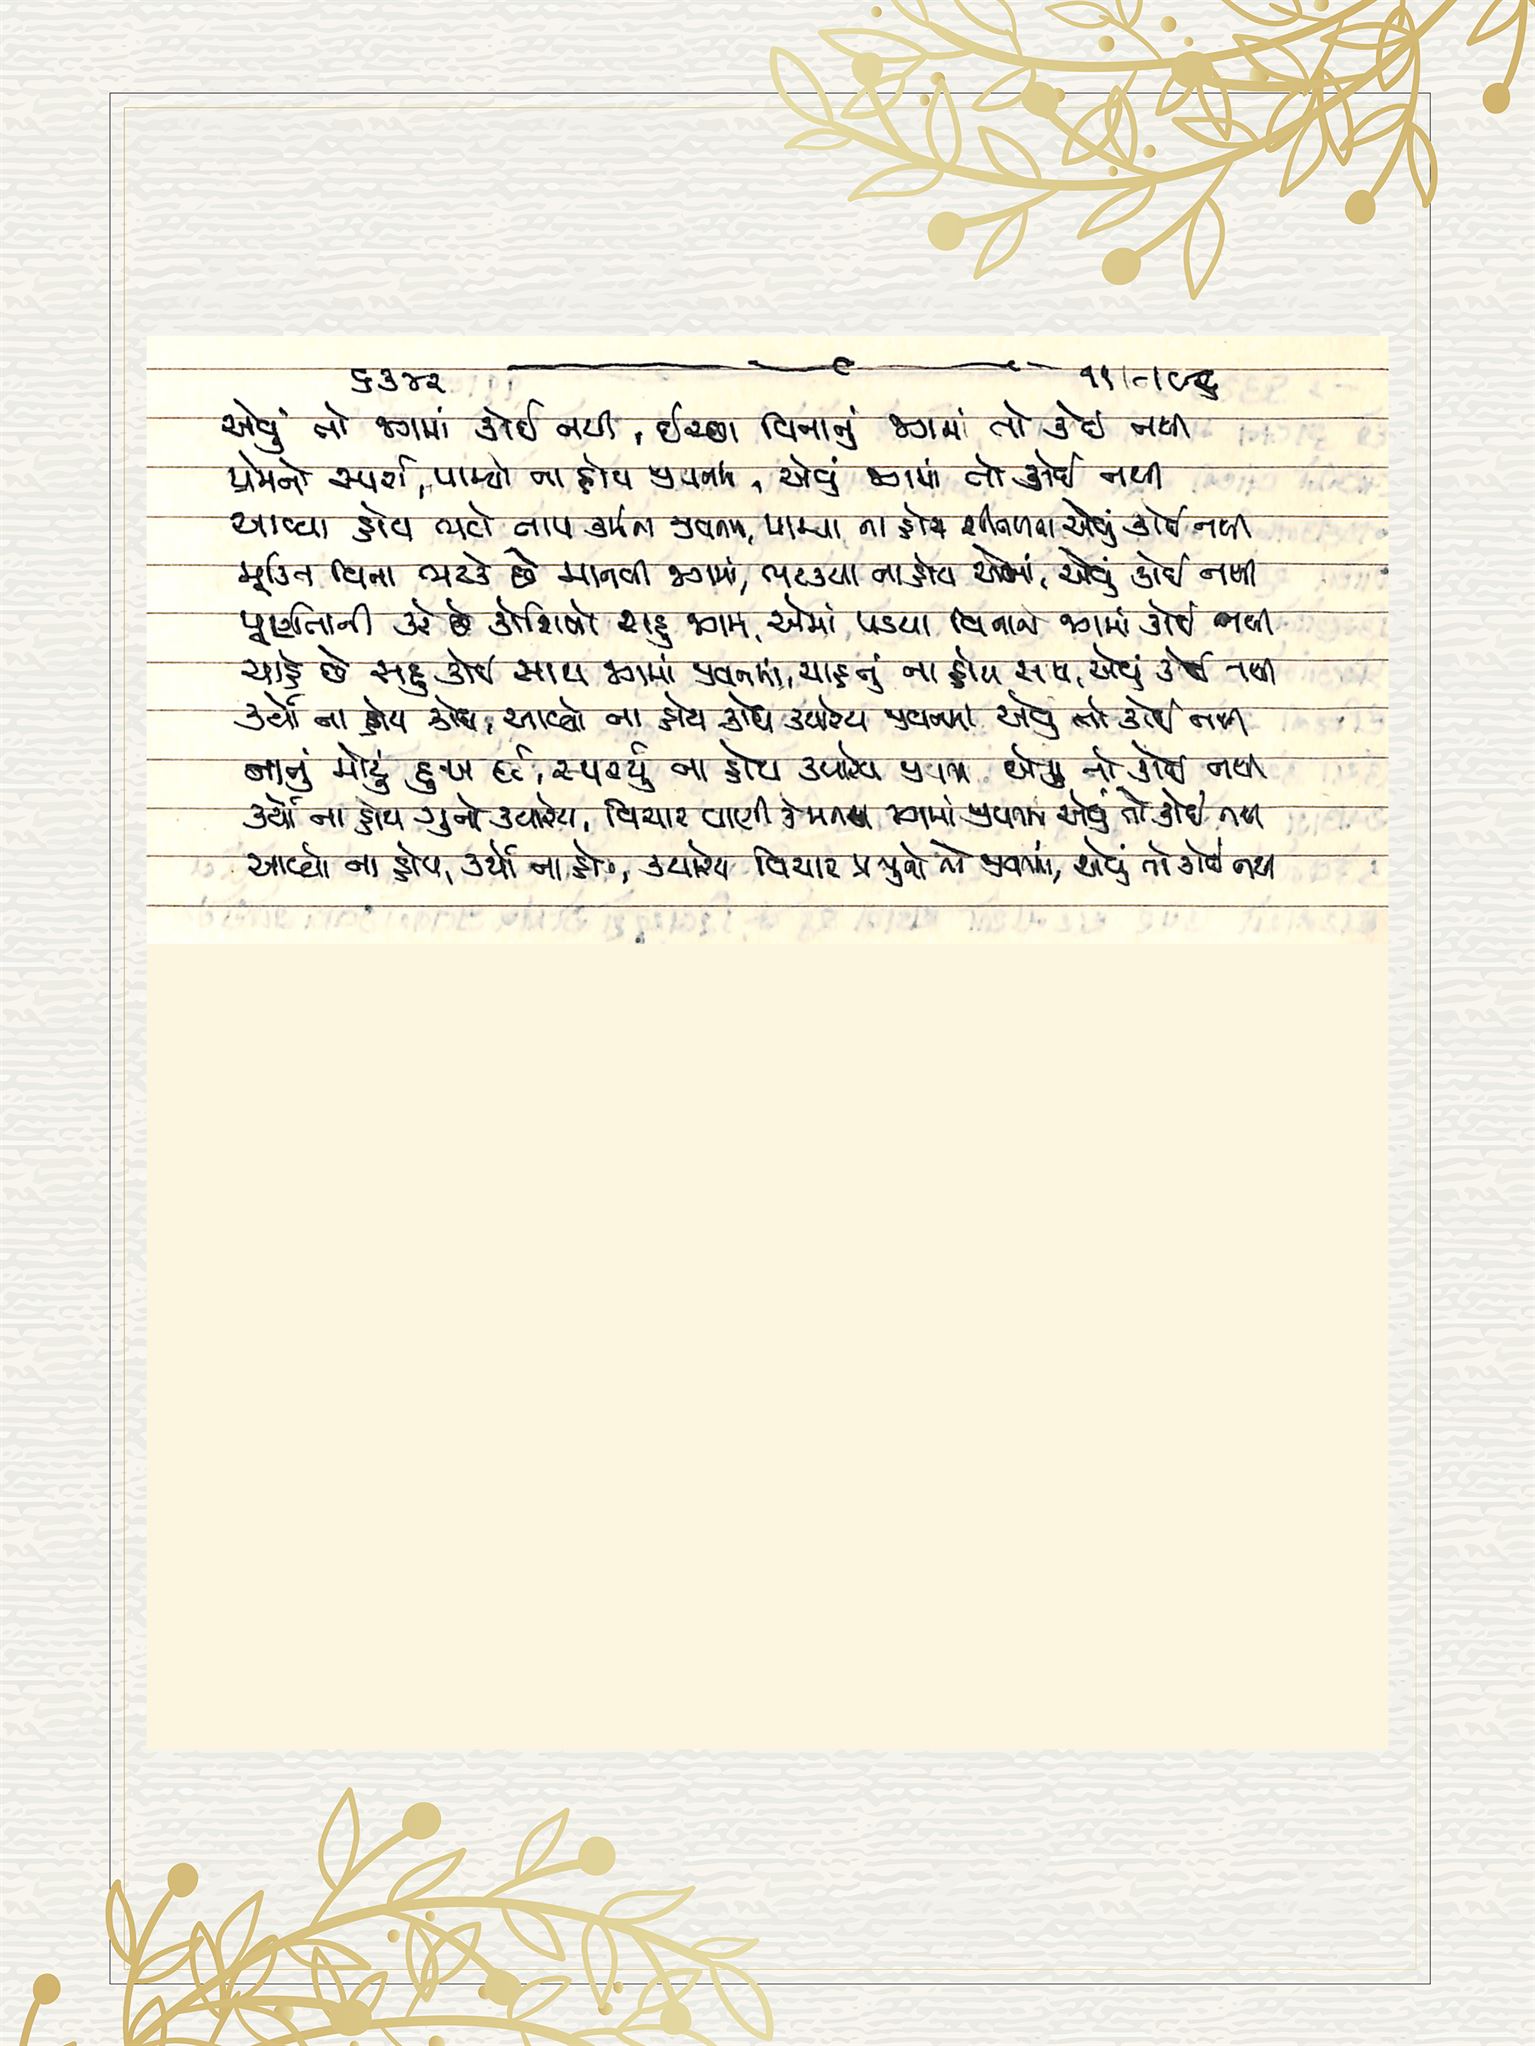 ૬૩૪૨
એવું તો જગમાં કોઈ નથી, ઈચ્છા વિનાનું જગમાં તો કોઈ નથી
પ્રેમનો સ્પર્શ, પામ્યો ના હોય જીવનમાં, એવું જગમાં તો કોઈ નથી
આવ્યા હોય ભલે તાપ કર્મના જીવનમાં, પામ્યા ના હોય શીતળતા એવું કોઈ નથી
મૂક્તિ વિના ભટકે છે માનવી જગમાં, ભટકયા ના હોય એમાં, એવું કોઈ નથી
પૂર્ણતાની કરે છે કોશિશો સહુ જગમાં, એમાં પડયા વિનાના જગમાં કોઈ નથી
ચાહે છે સહુ કોઈ સાથ જગમાં જીવનમાં, ચાહતું ના હોય સાથ, એવું કોઈ નથી
કર્યો ના હોય ક્રોધ, આવ્યો ના હોય ક્રોધ ક્યારેય જીવનમાં એવું તો કોઈ નથી
નાનું મોટું દુઃખ દર્દ, સ્પર્શ્યું ના હોય ક્યારેય જીવનમાં એવું તો કોઈ નથી
કર્યો ના હોય ગુનો ક્યારેય, વિચાર વાણી કે જગમાં જીવનમાં એવું તો કોઈ નથી
આવ્યો ના હોય, કર્યો ના હોય, ક્યારેય વિચાર પ્રભુનો તો જીવનમાં, એવું તો કોઈ નથી